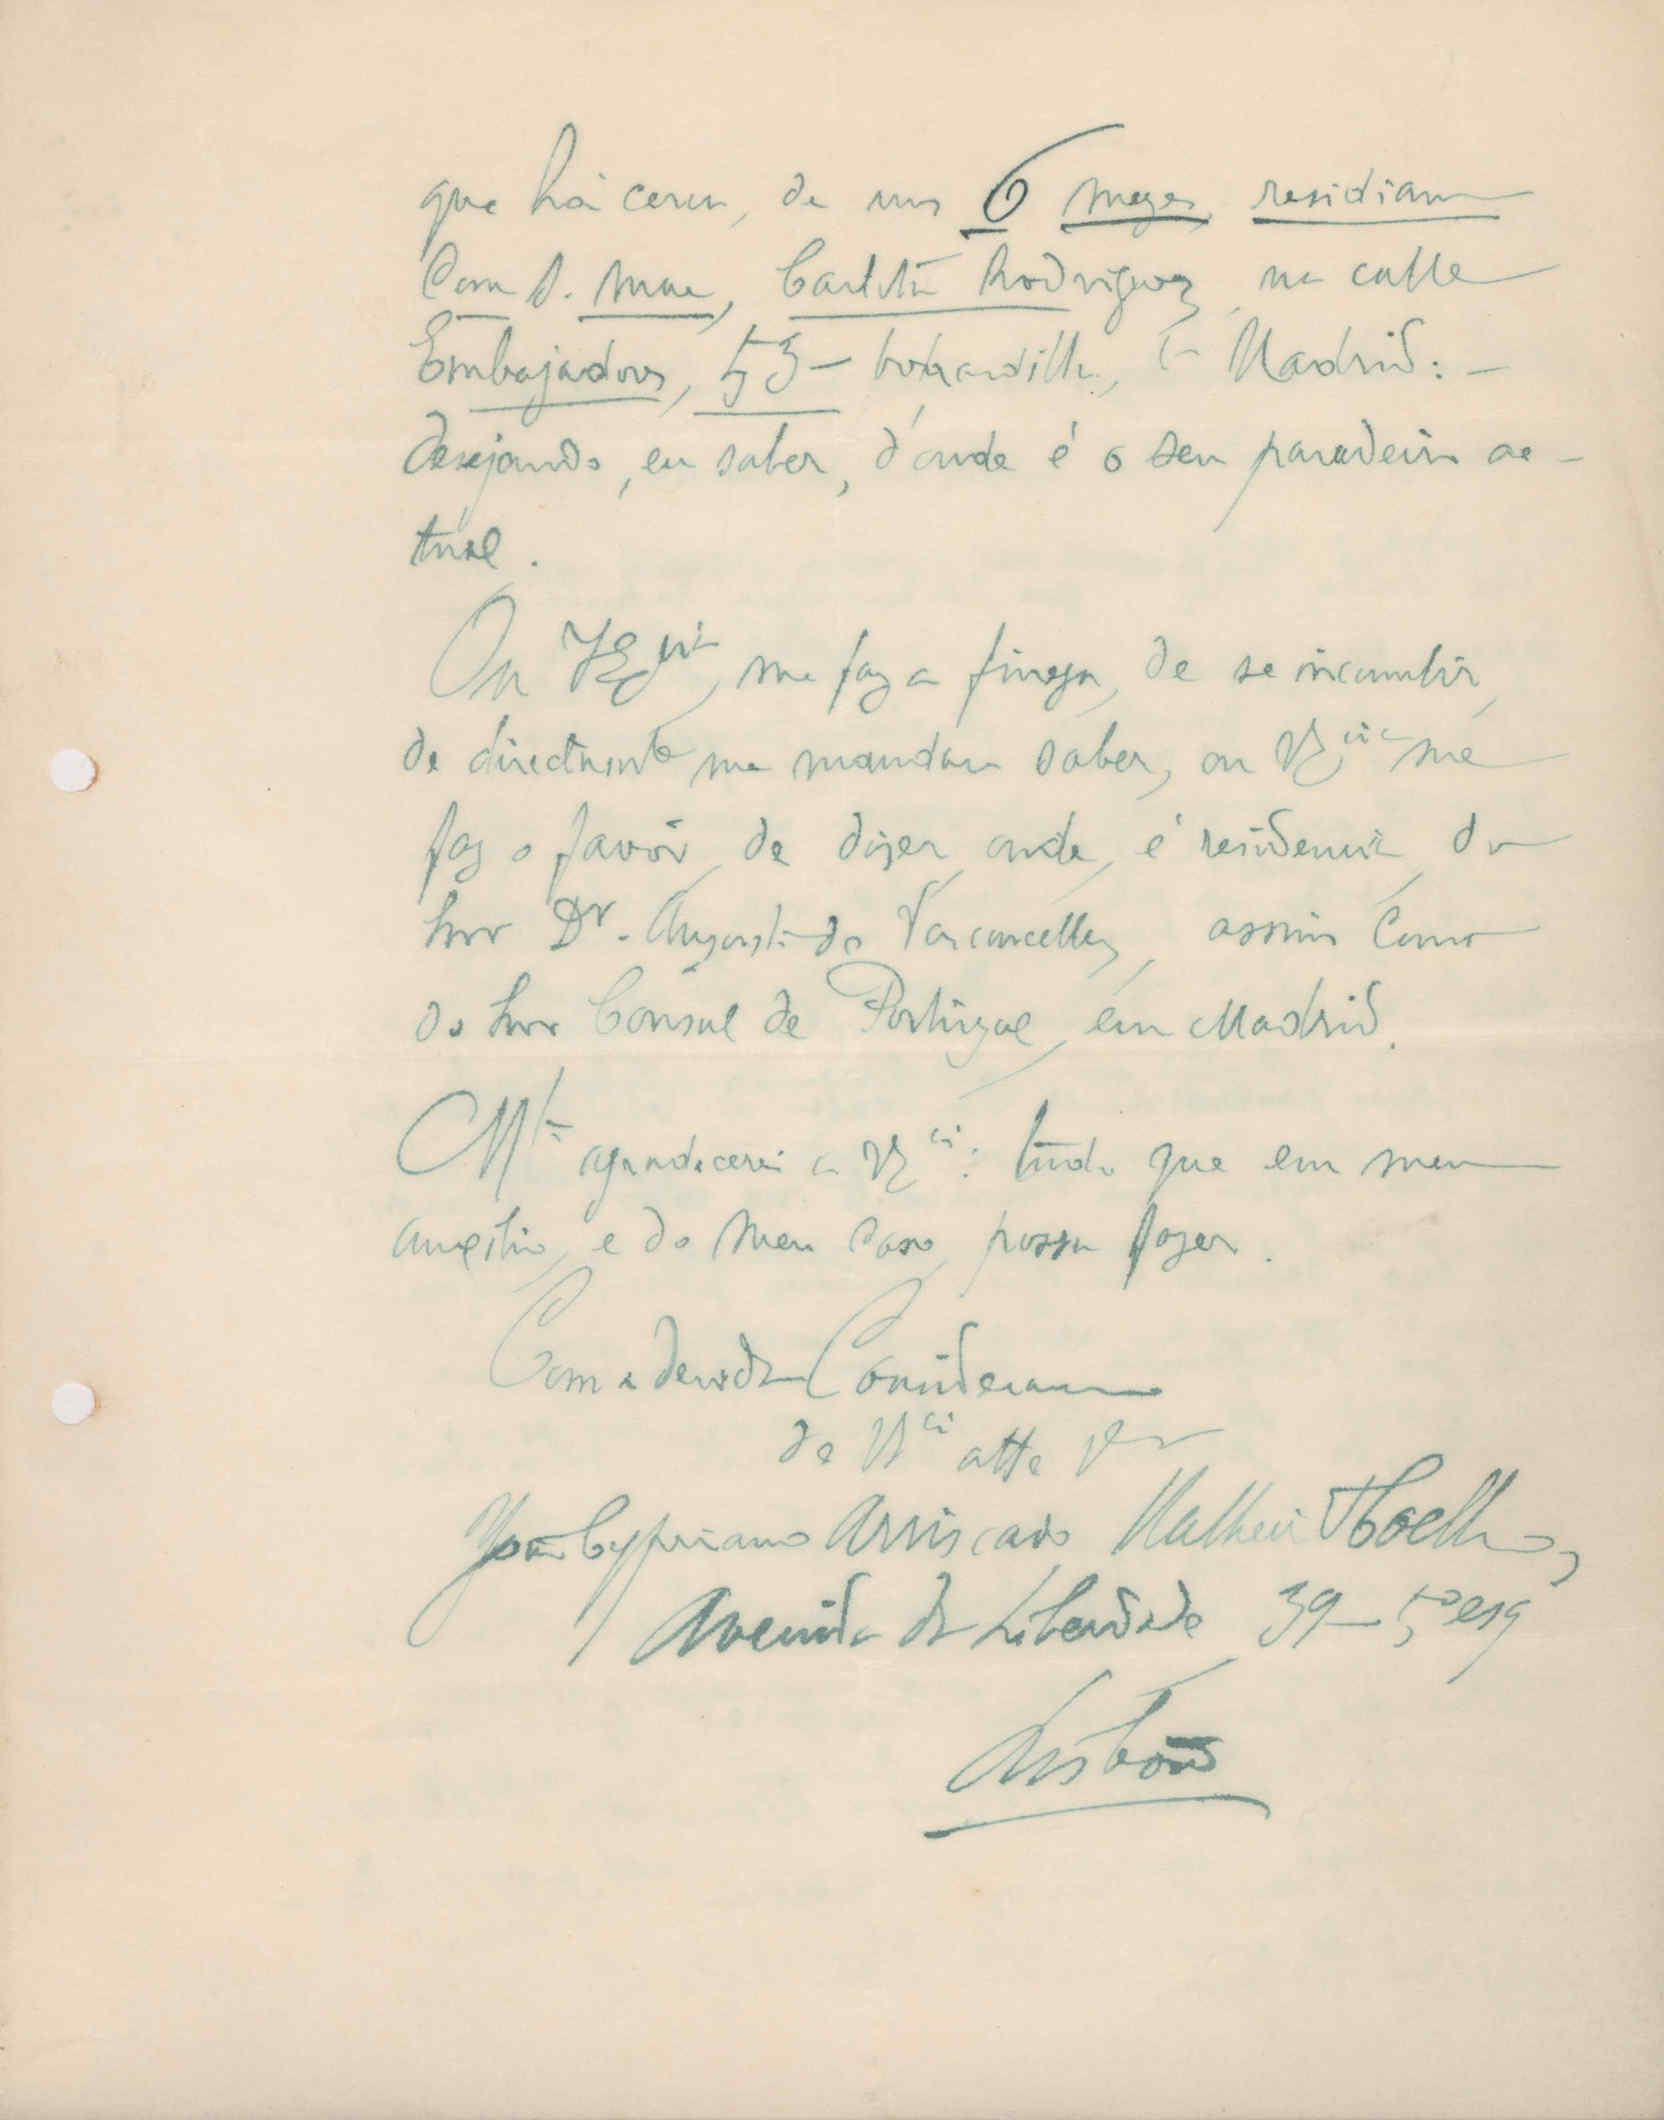 que há cerca, de uns 6 mezes, residiam
com S. Mãe, Rodriguez, na calle
Embajadores, 53 – bohardilla, Madrid: –
desejando, eu saber, d'onde é o seu paradeiro ac-
tual.
Ou VExcia, me faz a fineza, de se incumbir,
de directamente me mandar saber, ou VExcia me
faz o favôr, de dizer, onde, é residencia, do
Snr Dr. Augusto de Vasconcellos, assim como
do Snr Consul de Portugal, em Madrid.
Mto agradecerei a VExcia: tudo que em meu
auxilio, e do meu caso, possa fazer.
Com a devida Consideração
de VExcia atto
João Cypriano Arriscado Matheus Coelho,
Avenida da Liberdade 39 – 5º esq
Lisbôa